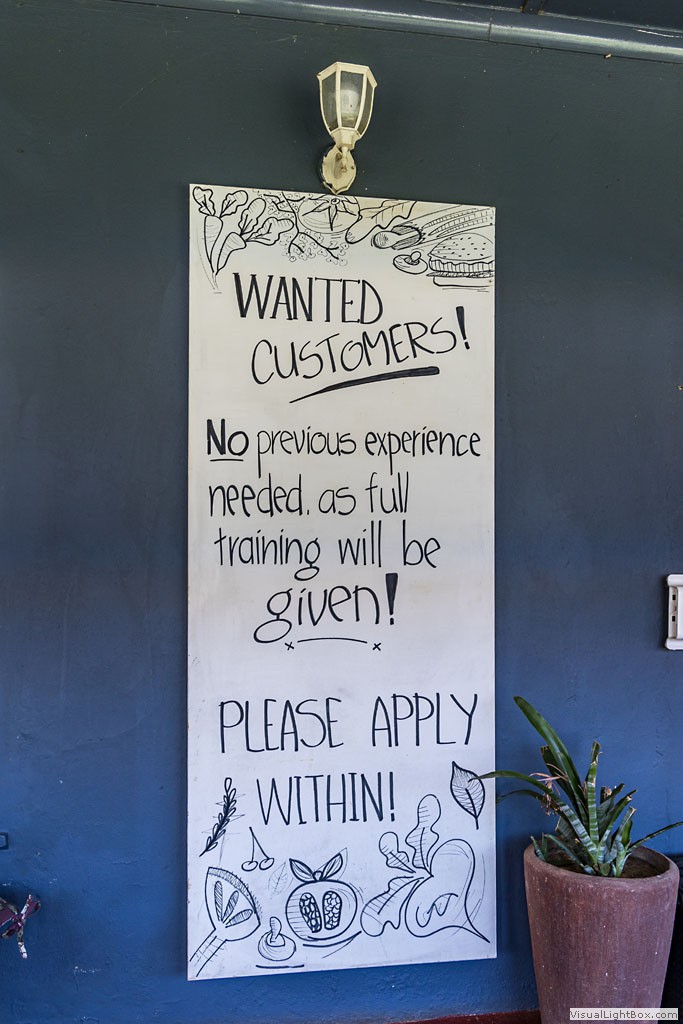 WANTED
CUSTOMERS!
No previous experience
needed. as full
training will be
given!
PLEASE APPLY
WITHIN!
VisualLightBox.com